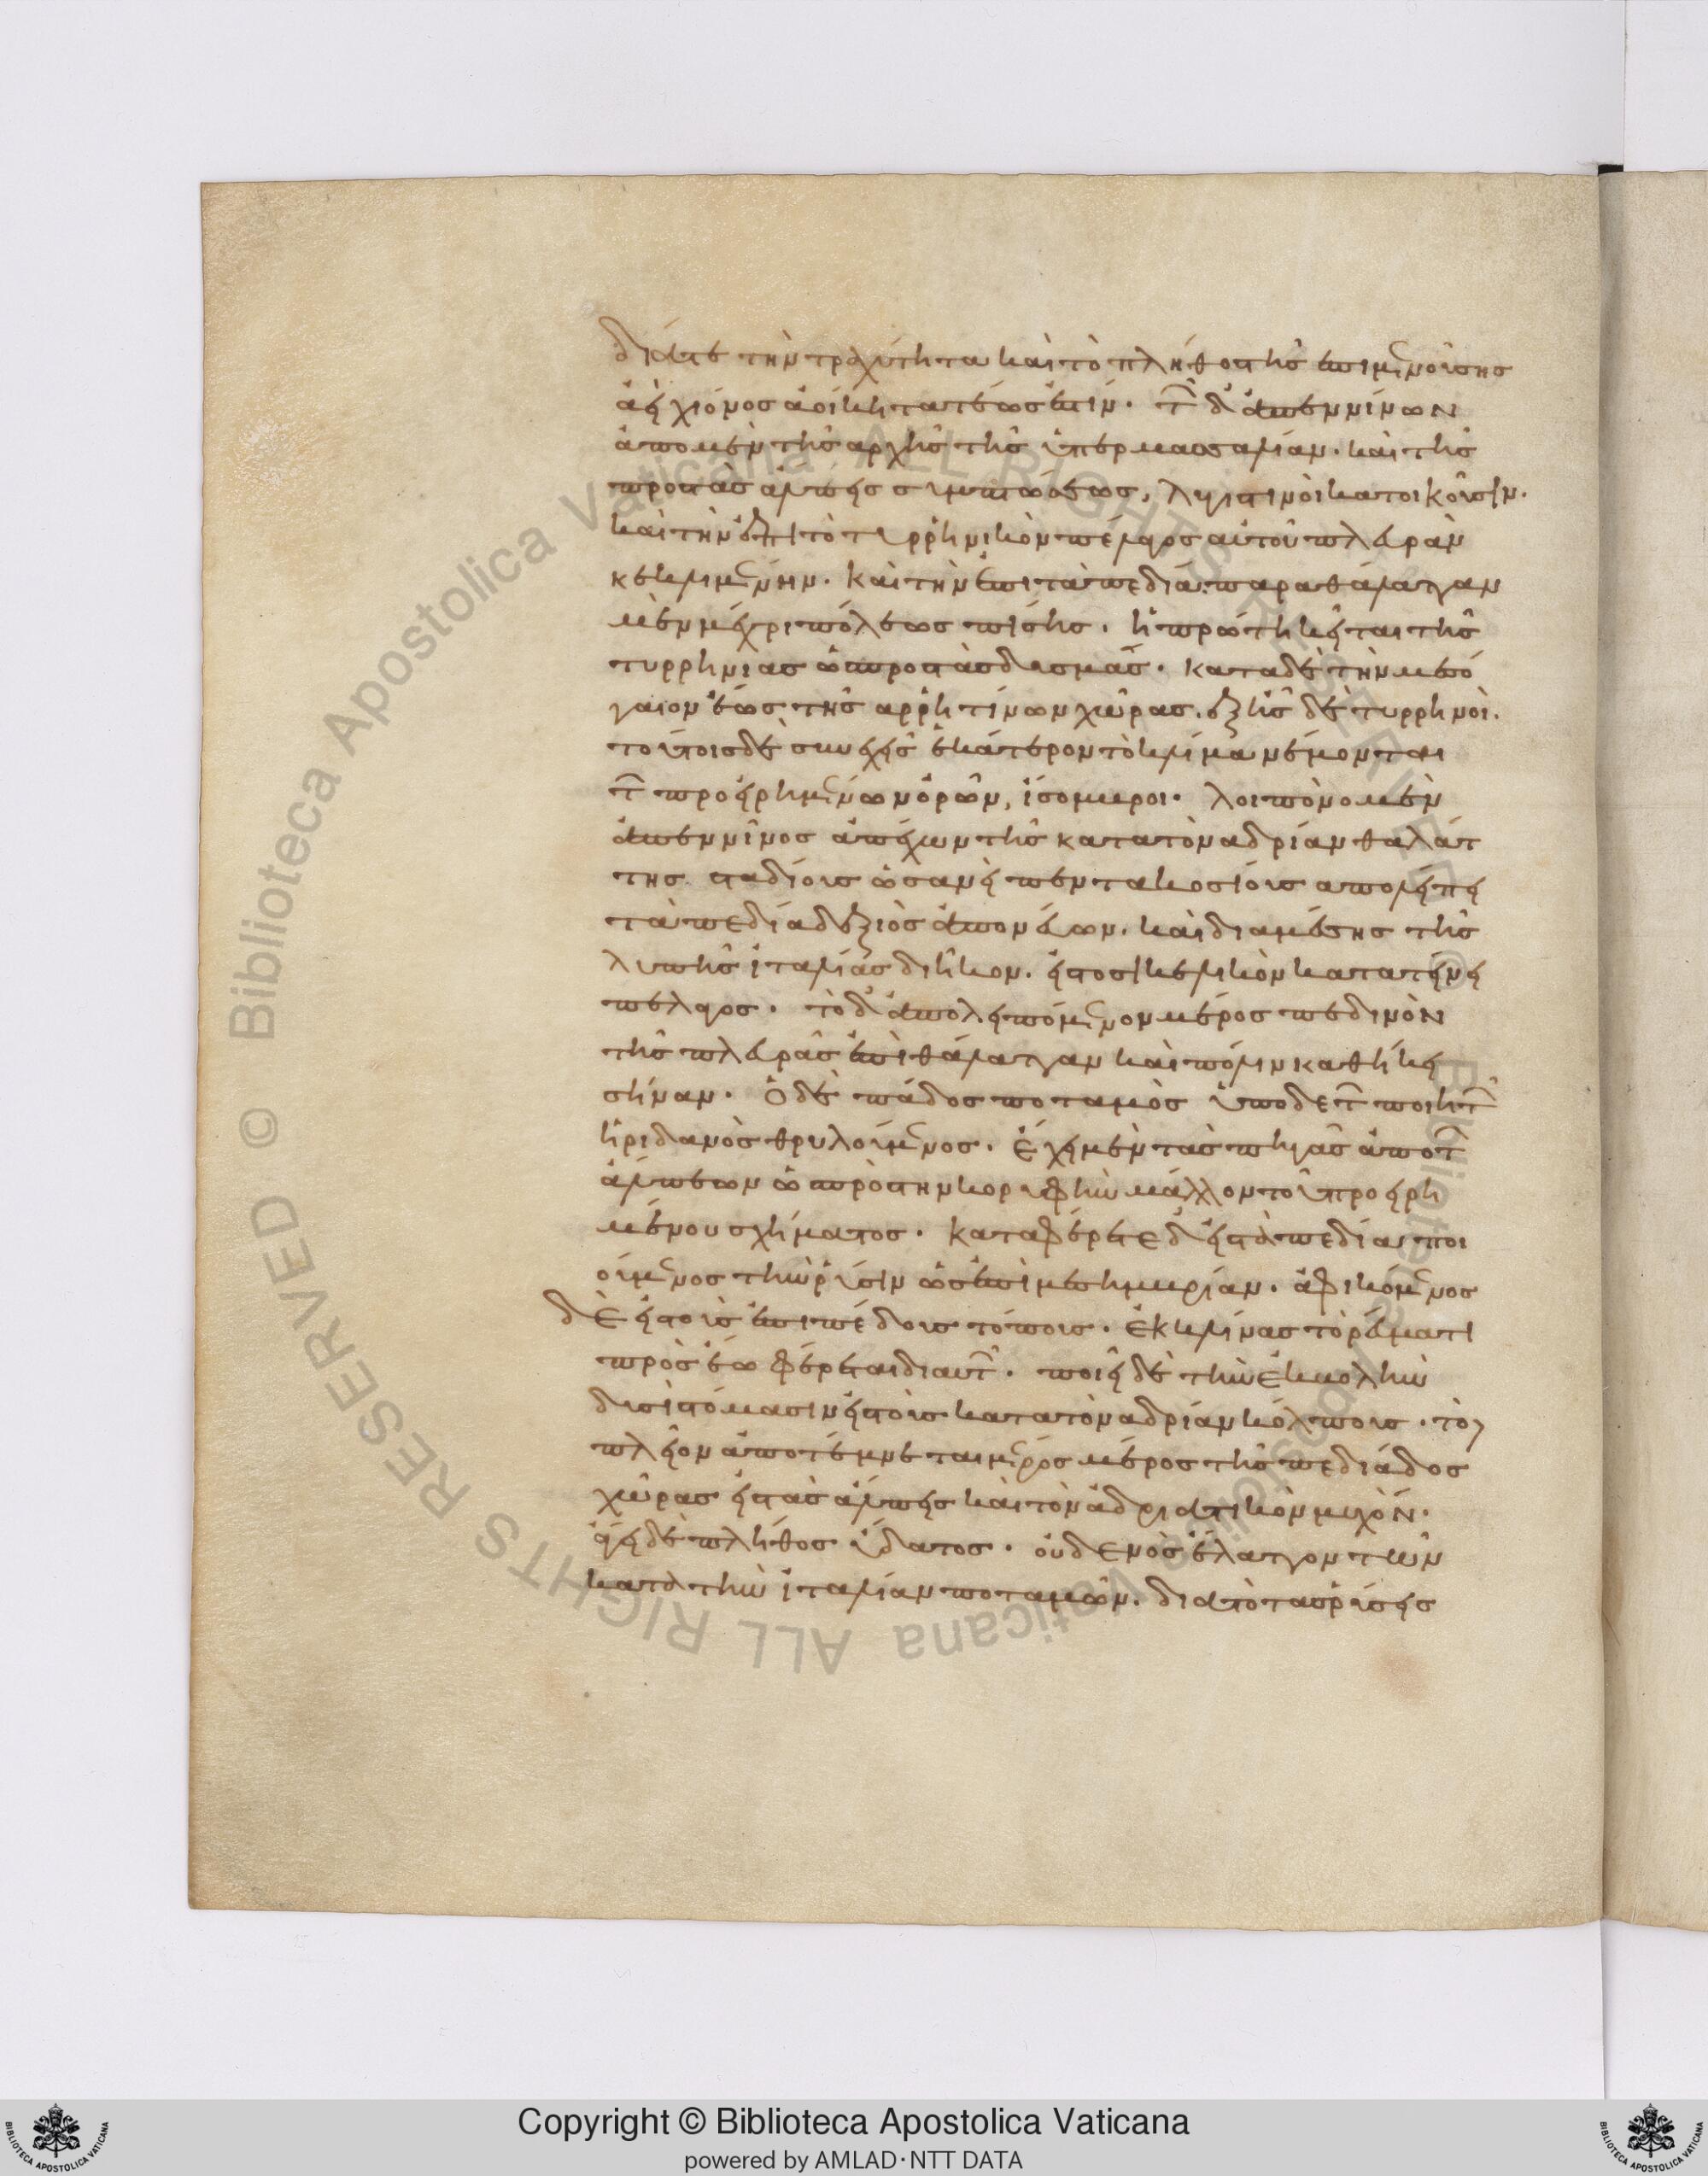 διάτε τὴν τραχύτητα καὶ τὸ πλῆθος τῆς ἐπιμενούσης
ἀεὶ χιόνος ἀοίκητα τελέως ἐστίν. τὸν δ' ἀπεννῖνων
ἀπὸ μὲν τῆς ἀρχῆς τῆς ὑπὲρ μασσαλίαν. καὶ τῆς
πρὸς τὰς ἄλπεις συμπτώσεως, λιγυστινοὶ κατοικοῦσιν.
καὶ τὴν ἐπὶ τὸ τυρρηνικὸν πέλαγος αὐτοῦ πλευρὰν
κεκλιμένην. καὶ τὴν ἐπὶ τὰ πεδία. παρα θάλατταν
μὲν μέχρι πόλεως πίσης. ἣ πρώτη κεῖται τῆς
τυρρηνίας ὡς πρὸς τὰς δυσμάς. κατα δὲ τὴν μεσό
γαιον ἕως τῆς ἀρρητίνων χώρας. ἑξῆς δὲ τυρρηνοί.
τούτοις δὲ συνεχεῖς ἑκάτερον τὸ κλίμα νέμονται
τῶν προειρημένων ὀρῶν, ἴσομβροι. λοιπὸν ὁ μὲν
ἀπεννῖνος ἀπέχων τῆς κατα τὸν ἀδρίαν θαλάτ
της σταδίους ὡσανεὶ πεντακοσίους ἀπολείπει
τὰ πεδία δεξιὸς ἀπονεύων. καὶ δια μέσης τῆς
λοιπῆς ἰταλίας διῆκον. εἰς το σικελικὸν κατατείνει
πέλαγος. τὸ δ' ἀπολειπόμενον μέρος πεδινὸν
τῆς πλευρᾶς ἐπὶ θάλατταν καὶ πόλιν καθήκει
σήναν. ὁ δὲ πάδος ποταμὸς ὑπο δε τῶν ποιητῶν
ἠριδανὸς θρυλούμενος. ἔχει μὲν τὰς πηγὰς ἀπο τῶν
ἄλπεων ὡς πρὸς τὴν κορυφὴν μᾶλλον τοῦ προειρη
μένου σχήματος. καταφέρεται δ' εἰς τὰ πεδία ποι
ούμενος τὴν ῥύσιν ὡς ἐπὶ μεσημβρίαν. ἀφικόμενος
δὲ εἰς τοὺς ἐπιπέδους τόπους. ἐκκλίνας τὸ ῥεύματι
πρὸς ἕω φέρεται δι αὐτῶν. ποιεῖ δὲ τὴν ἐκβολὴν
δυσὶ στόμασιν εἰς τοὺς κατα τὸν ἀδρίαν κόλπους. τὸ
πλεῖον ἀποτέμνεται μέρος μέρος τῆς πεδιάδος
χώρας εἰς τὰς ἄλπεις καὶ τὸν ἀδριατικὸν μυχόν.
ἄγει δὲ πλῆθος ὕδατος. οὐδενὸς ἔλαττον τῶν
κατὰ τὴν ἰταλίαν ποταμῶν. διὰ τὸ τὰς ῥύσεις